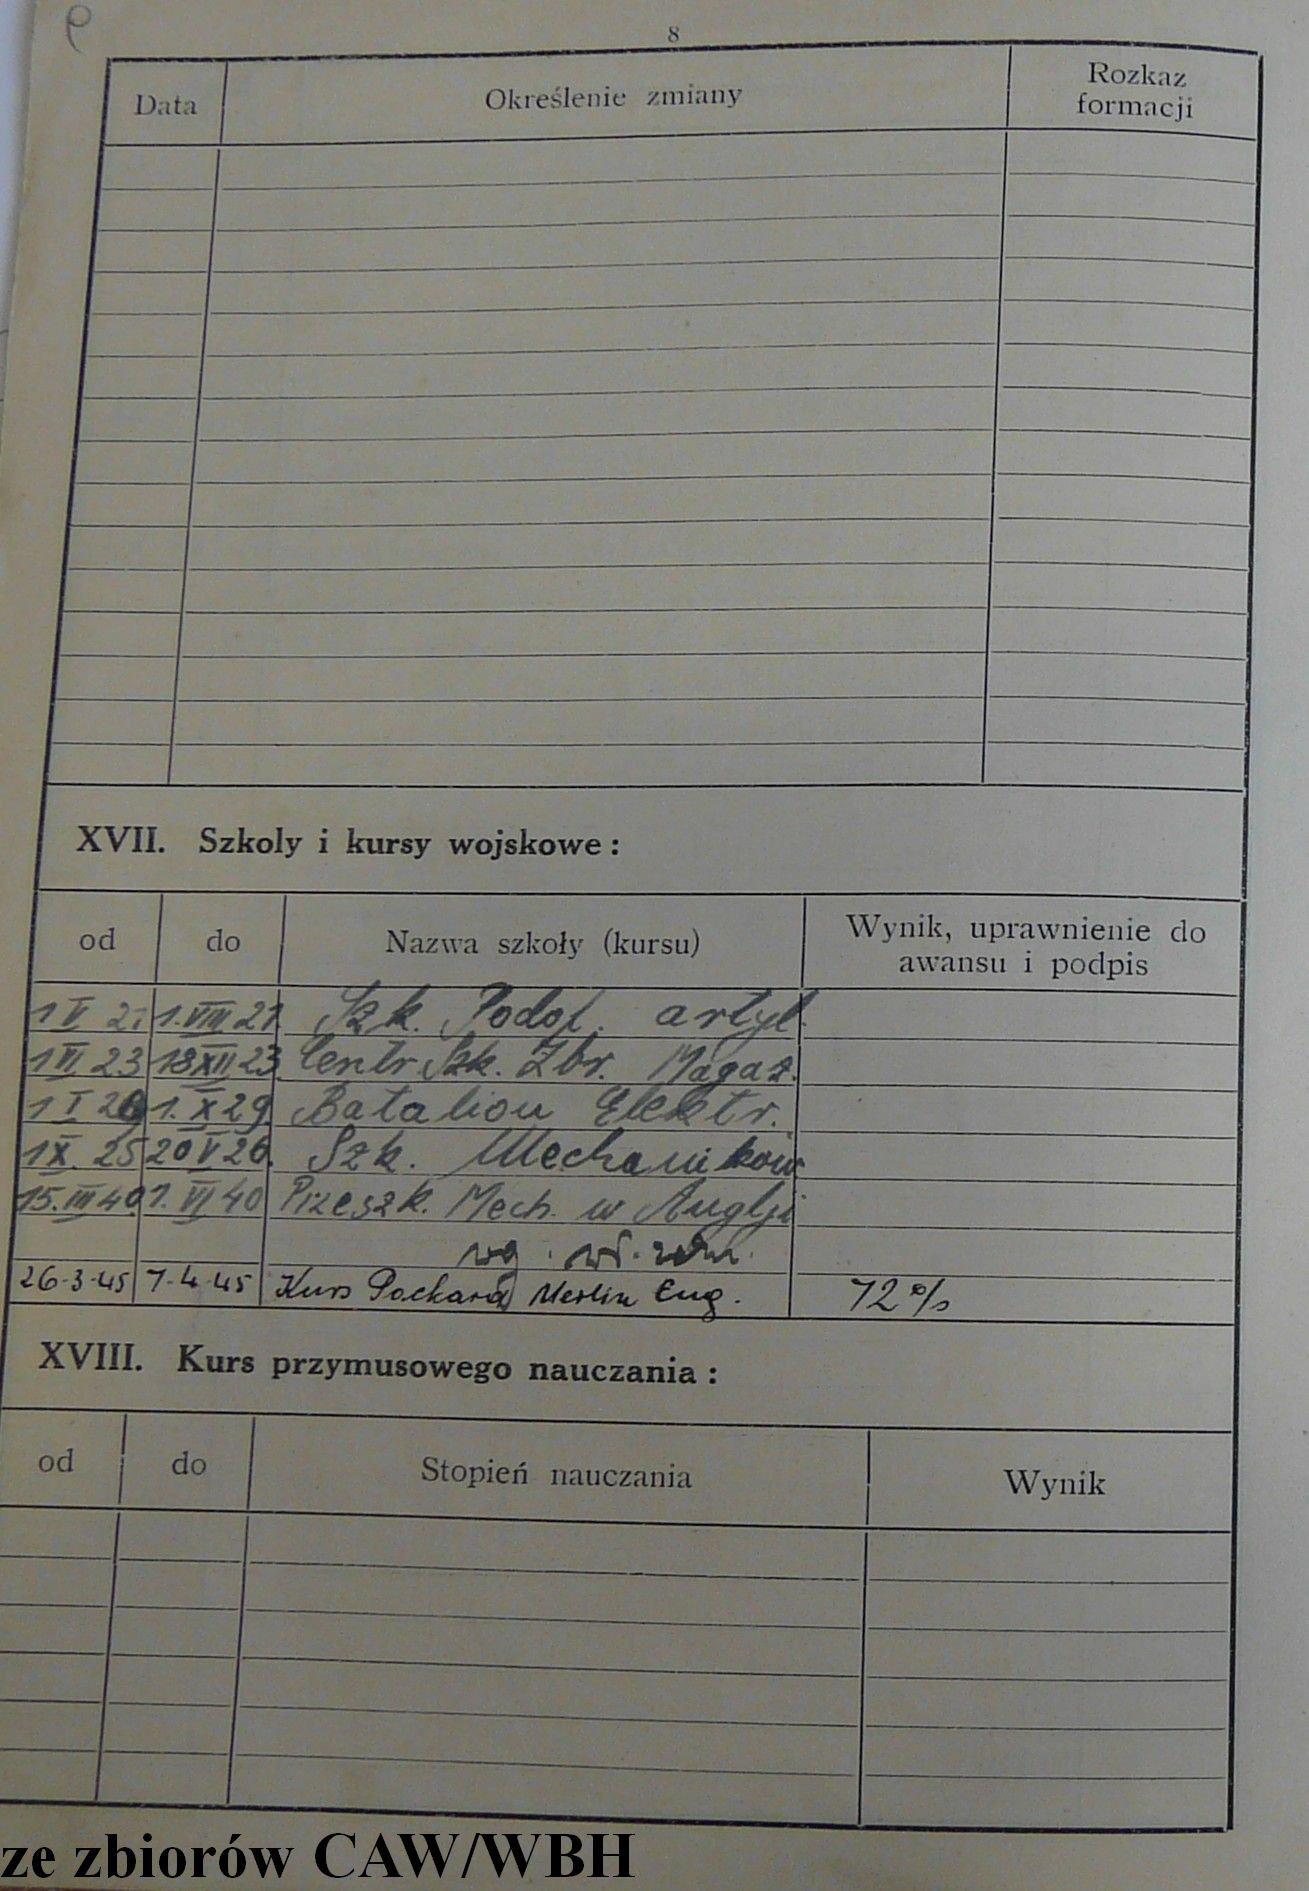 9
8
Data Określenie zmiany Rozkaz formacji
XVII. Szkoly i kursy wojskowe:
od do Nazwa szkoły (kursu) Wynik, uprawnienie do awansu i podpis
1 V 21 1.VIII 21 Szk. Podof. artyl.
1 VI 23 18 XII 23 Centr Szk. Zbr. Magaz.
1 I 1. X 29 Batalion Elektr.
1 X. 25 20 V 26. Szk. Mechaników
15.III 40 1. VI 40 Przeszk. Mech. w Anglji
wg. wł. zezn.
26-3-45 7-4-45 Kurs Packard Merlin Eng. 72 %
XVIII. Kurs przymusowego nauczania:
od do Stopień nauczania Wynik
ze zbiorów CAW/WBH